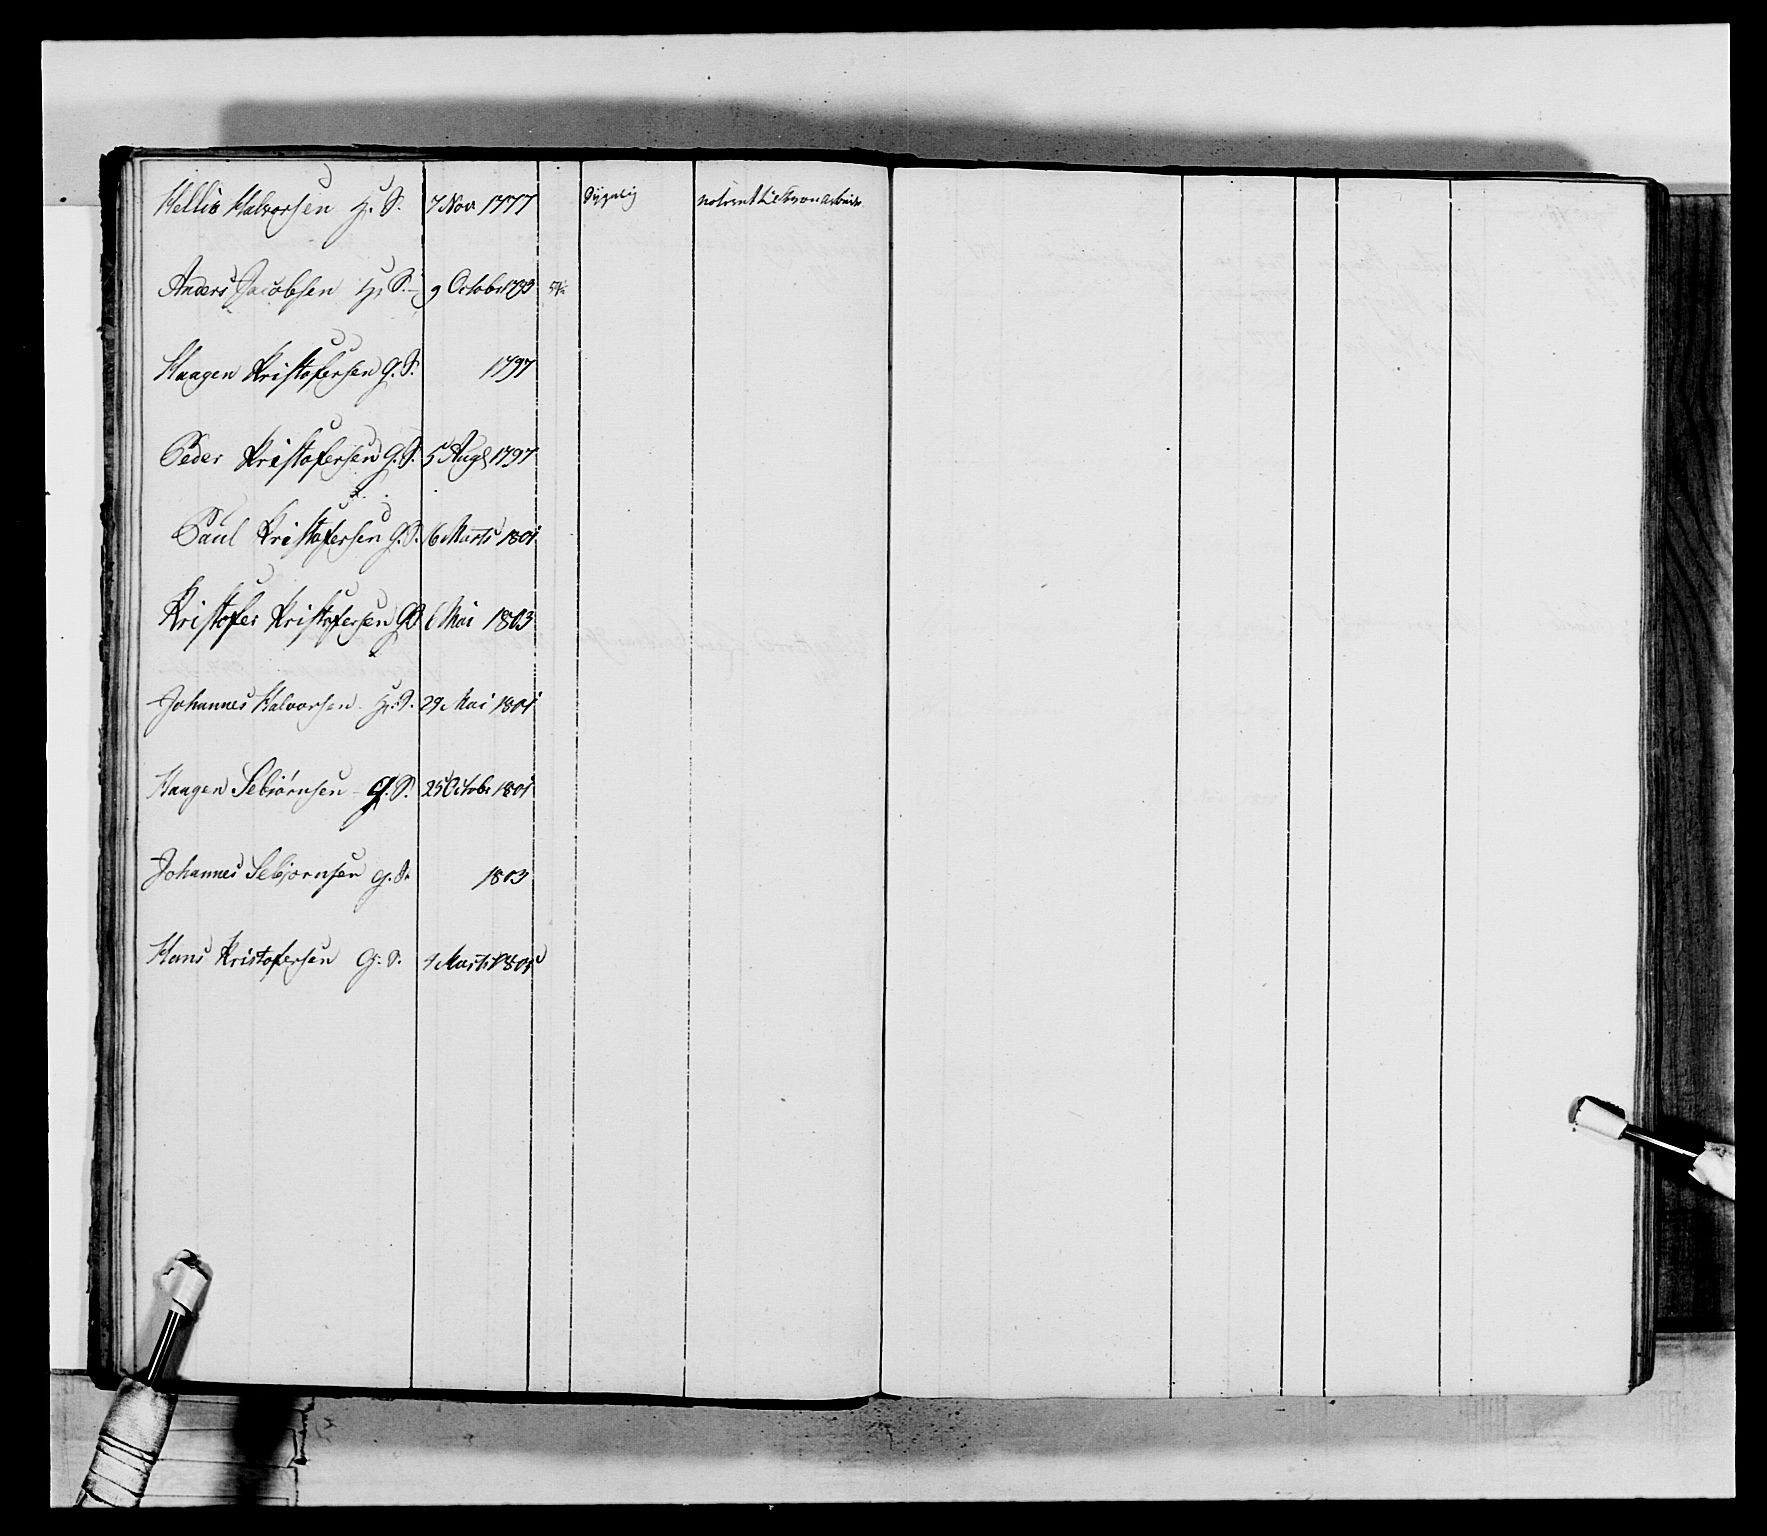 Kellis Halvorsen H. S. 7 Nov 1777 Sygelig
Anders Jacobsen H. S. 9 Octobr 1793
Haagen Kristofersen G. S. 1797
Peder Kristofersen G. S. 5 Augs 1797
Paul Kristofersen G. S. 6 Marts 1801
Kristofer Kristofersen G S 6 Mai 1803
Johannes Halvorsen H. S. 29 Mai 1801
Haagen Sebiörnsen G. S. 25 Octobr 1801
Johannes Sebjornsen G. S. 1803
Hans Kristofersen G. S. 4 Marts 1805